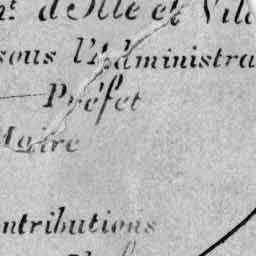 nt. d'Ille et Vila
sous l'Administra
Préfet
Maire
ontributions